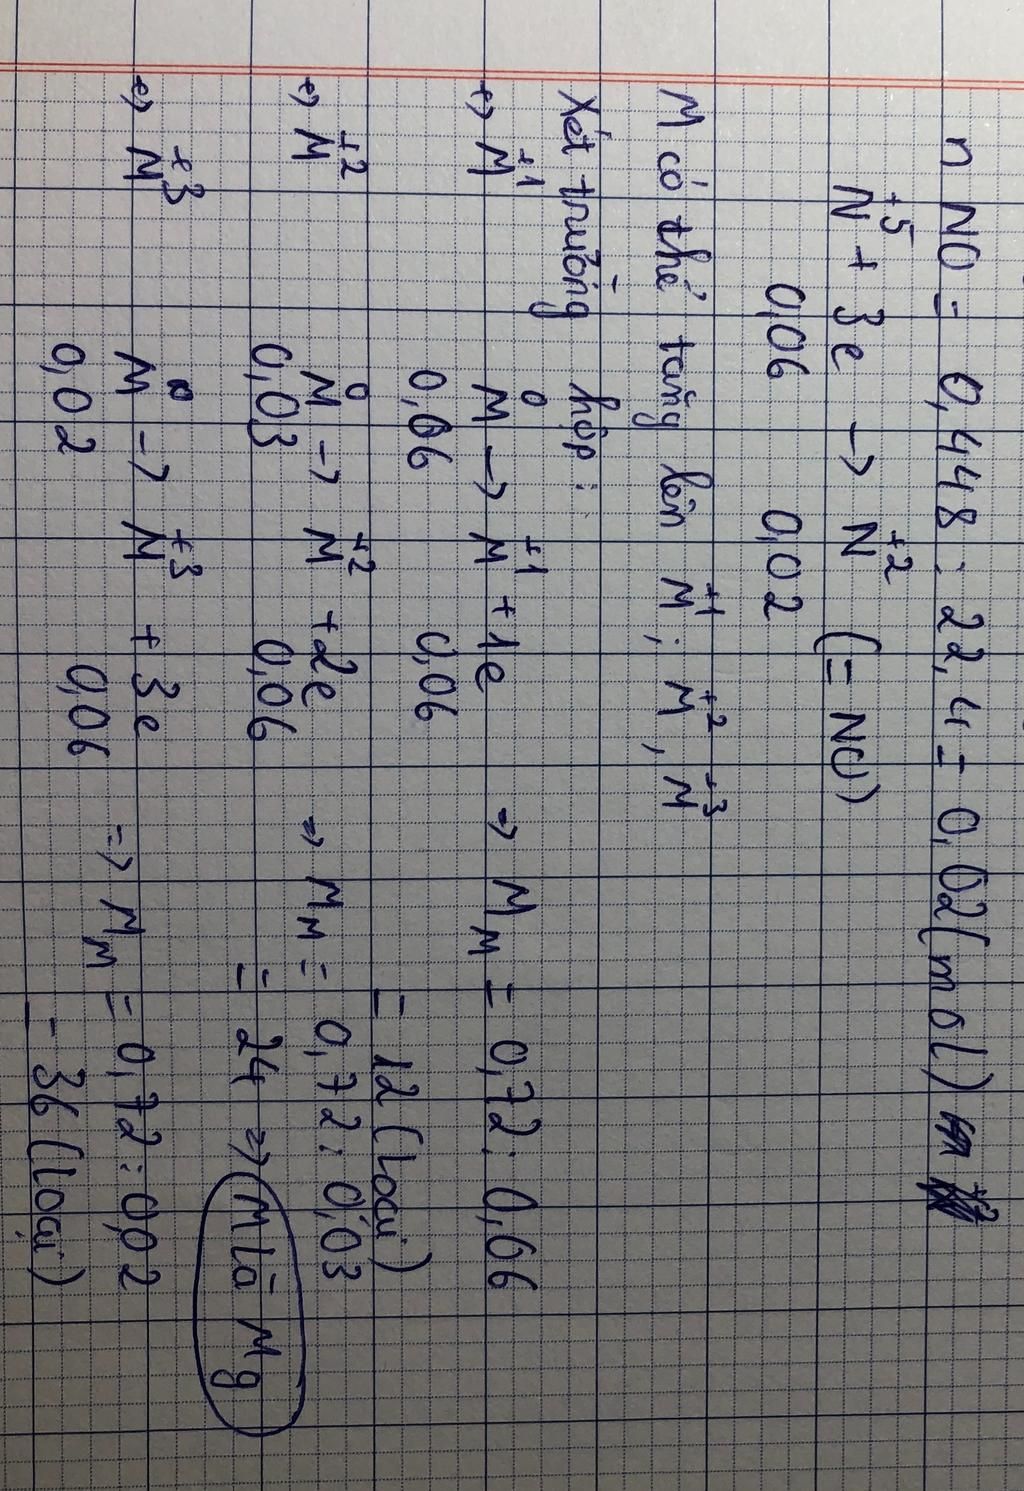 n NO = 0,448 : 22,4 = 0,02 (mol)
+5 +2
N + 3e → N (= NO)
0,06 0,02
+1 +2 +3
M có thể tăng lên M ; M , M
Xét trường hợp :
+1 0 +1
+) M M → M + 1e => M_M = 0,72 : 0,06
0,06 0,06 = 12 (loại)
+2 0 +2
+) M M → M + 2e => M_M = 0,72 : 0,03
0,03 0,06 = 24 => M là Mg
+3 0 +3
+) M M → M + 3e => M_M = 0,72 : 0,02
0,02 0,06 = 36 (loại)